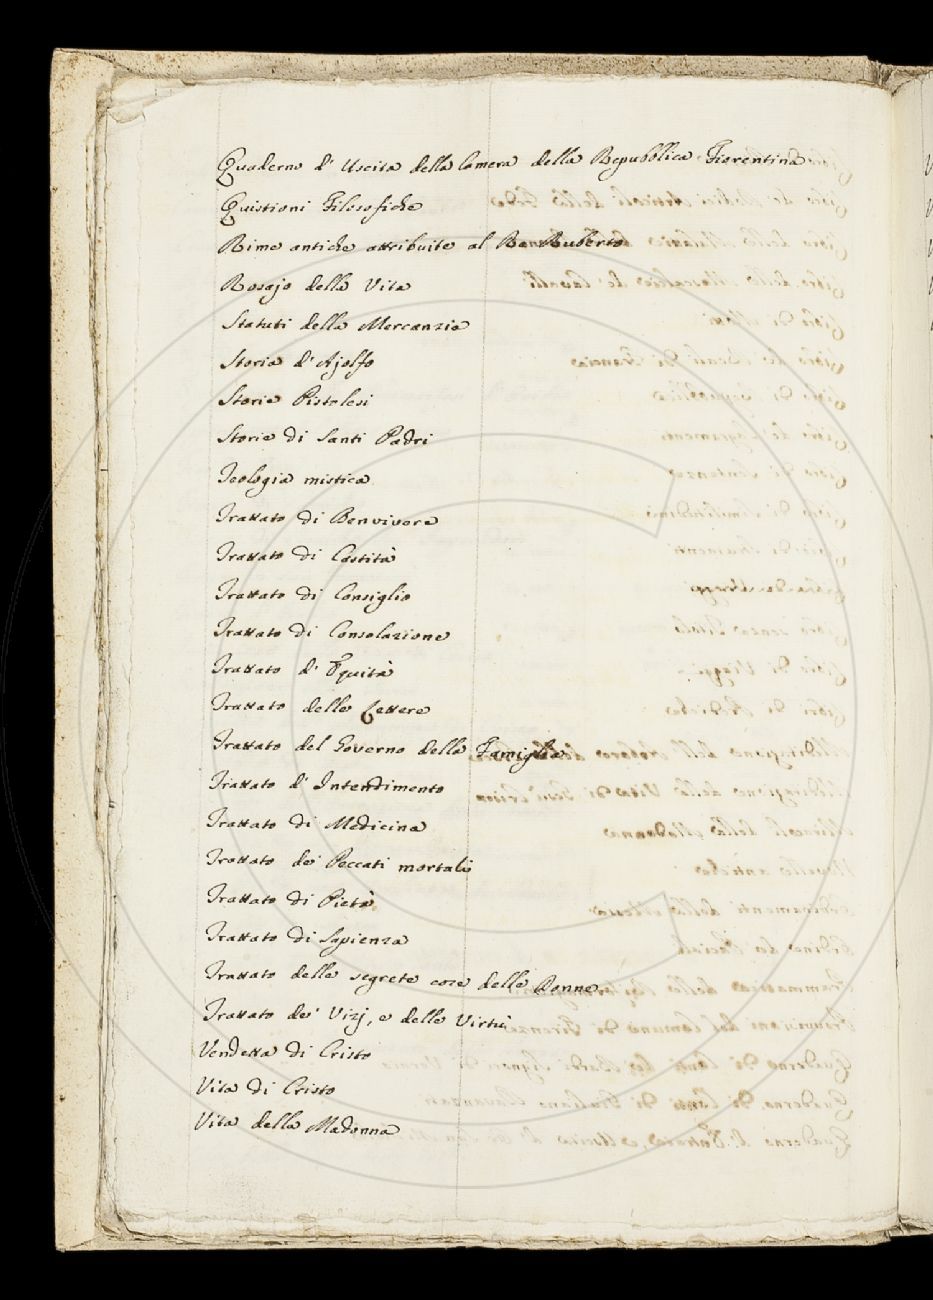 Quaderno d' Uscita della Camera della Repubblica Fiorentina
Quistioni Filosofiche
Rime antiche attribuite al Re Ruberto
Rosajo della Vita
Statuti della Mercanzia
Storia d' Ajolfo
Storie Pistolesi
Storie di Santi Padri
Teologia mistica
Trattato di Benvivere
Trattato di Castità
Trattato di Consiglio
Trattato di Consolazione
Trattato d' Equità
Trattato delle Lettere
Trattato del Governo della Famiglia
Trattato d' Intendimento
Trattato di Medicina
Trattato de' Peccati mortali
Trattato di Pietà
Trattato di Sapienza
Trattato delle segrete cose delle Donne
Trattato de' Vizj, e delle Virtù
Vendetta di Cristo
Vita di Cristo
Vita della Madonna